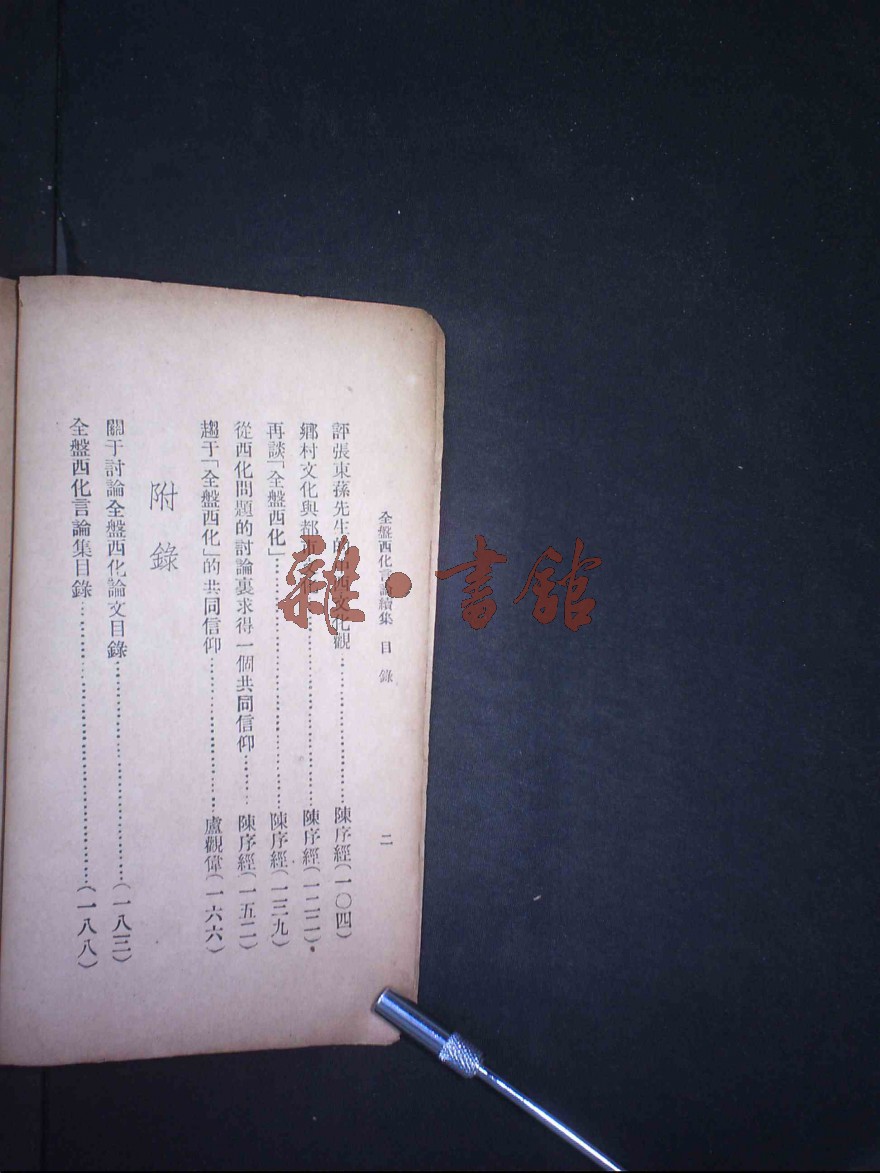 全盤西化言論續集 目錄 二
評張東蓀先生的中西文化觀……陳序經(一〇四)
鄉村文化與都市文化……陳序經(一二二)
再談「全盤西化」……陳序經(一三九)
從西化問題的討論裏求得一個共同信仰……陳序經(一五二)
趨于「全盤西化」的共同信仰……盧觀偉(一六六)
附錄
關于討論全盤西化論文目錄……(一八三)
全盤西化言論集目錄……(一八八)
雜·書館